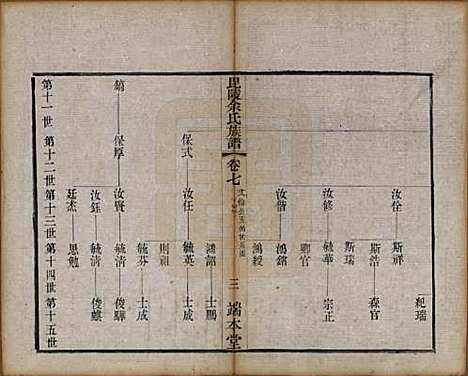 紀瑞
汝佺 斯祥
斯浩 森官
斯瑞
汝修 毓華 宗正
聊官
汝偕 鴻銘
鴻綬
毘陵余氏族譜 卷七 三 端本堂
鴻韶 士鵬
保式 汝任 毓英 士成
則祖
毓芬 士成
鎬 保厚 汝賢 毓清 俊驊
汝鈺 毓清 俊麒
廷杰 思勉
第十一世 第十二世 第十三世 第十四世 第十五世